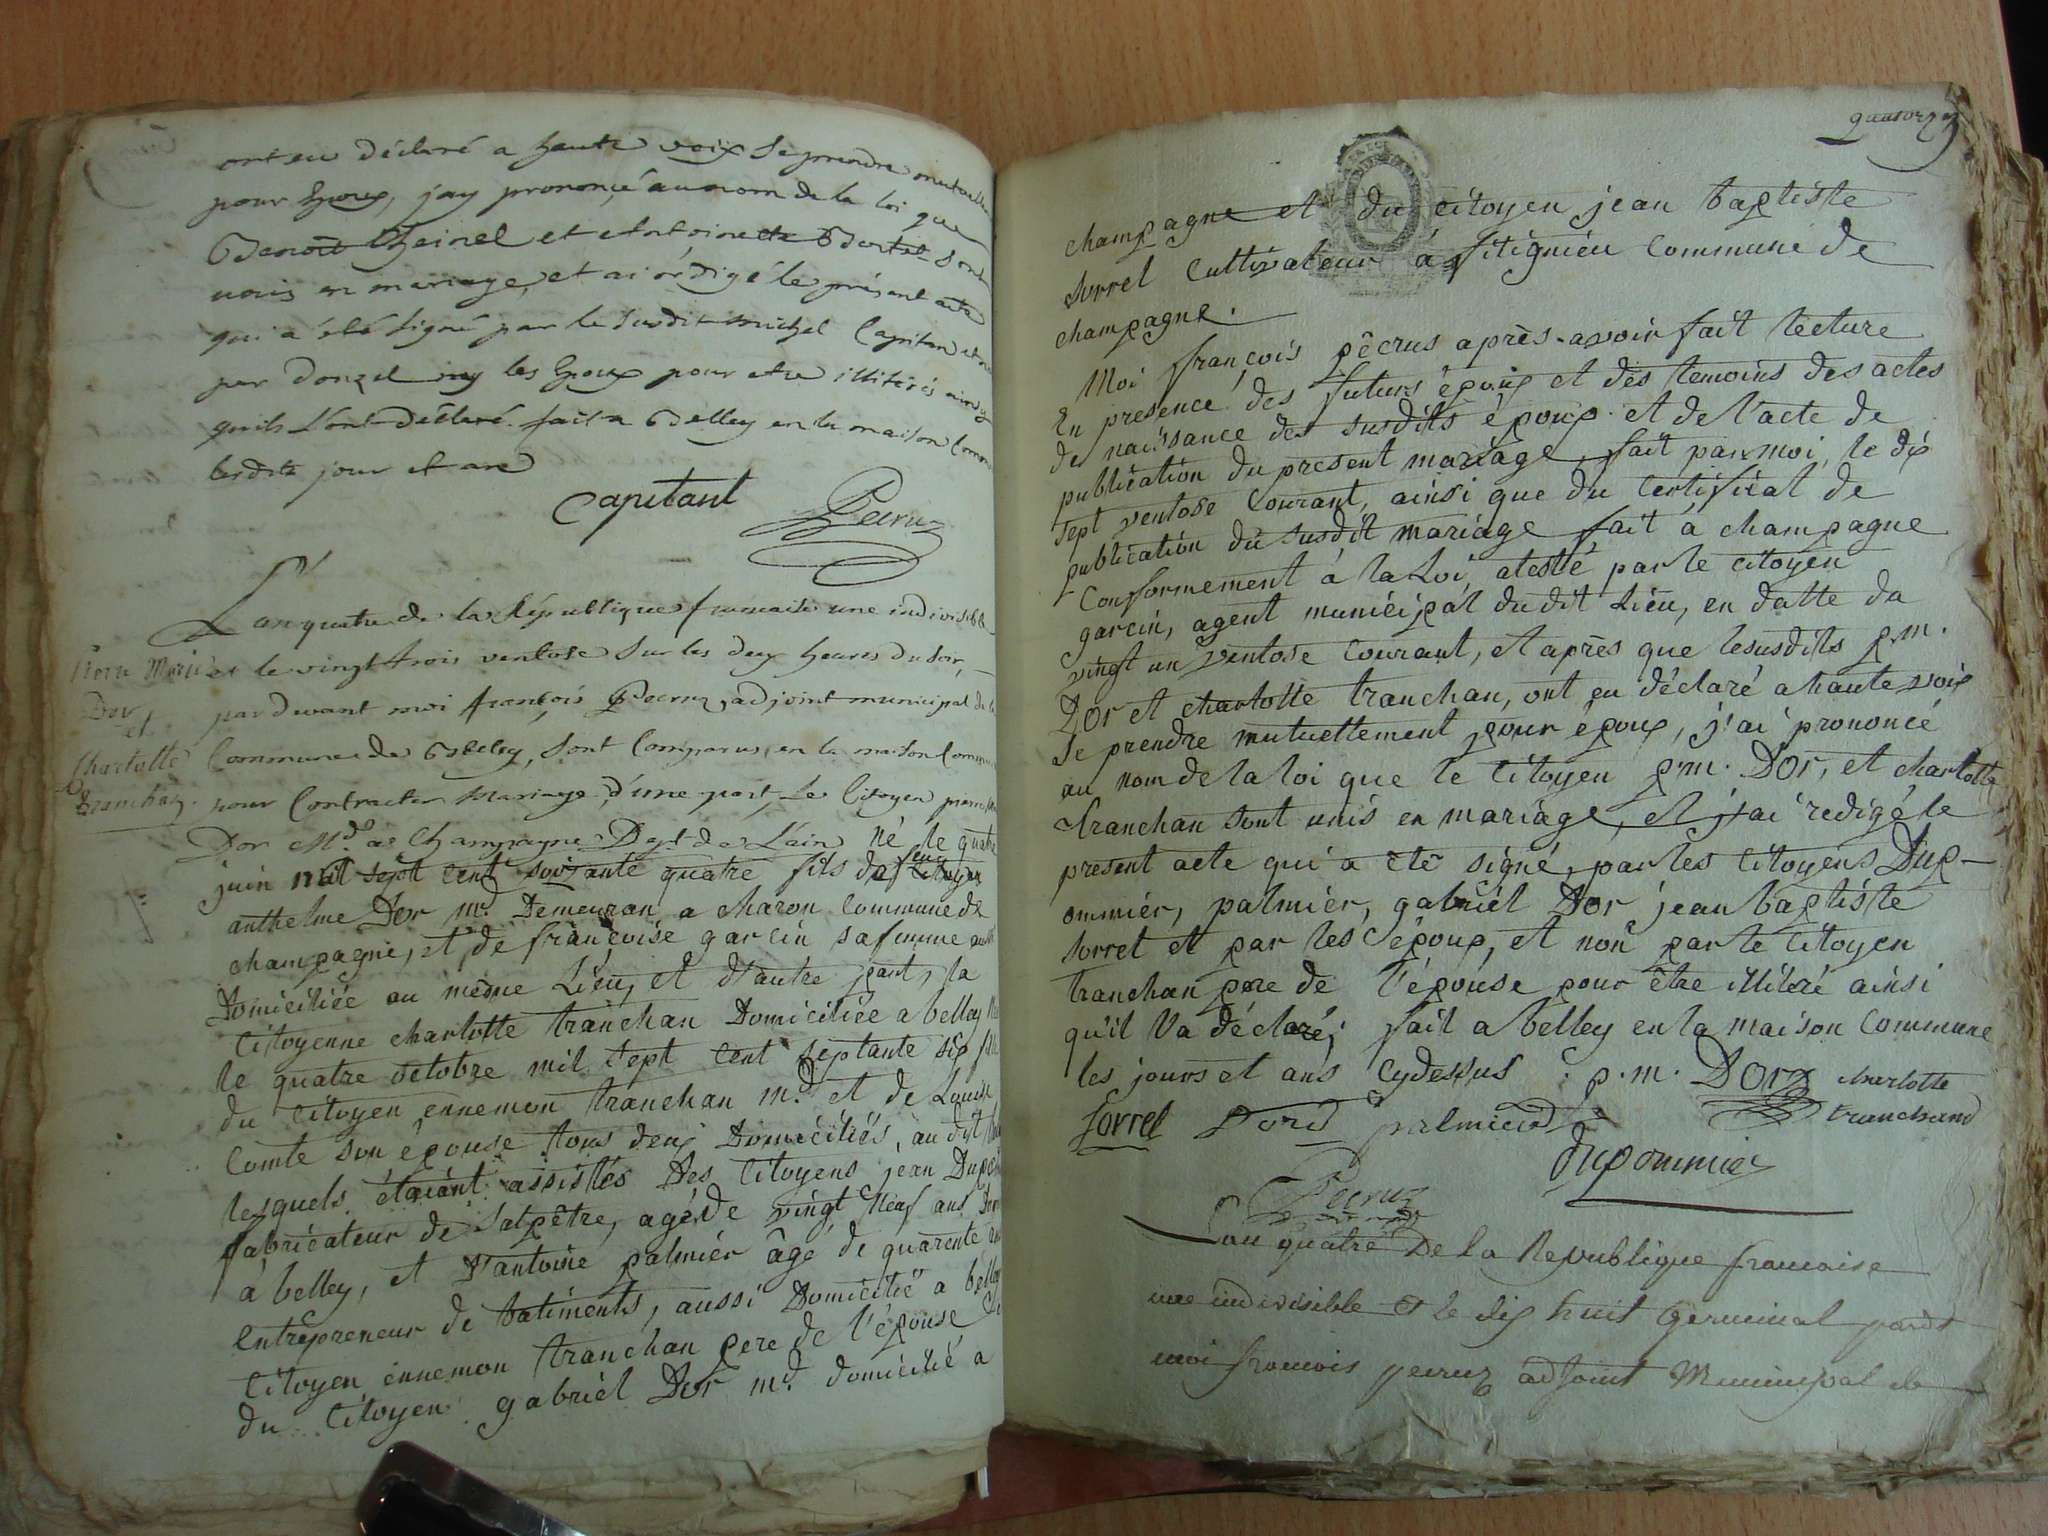 ont eu déclaré a haute voix se prendre mutuelle
pour Epoux, j'ay prononcé au nom de la loi que
Benoît et Antoinette sont
unis en mariage, et ai rédigé le présent acte
qui a été signé par le susdit michel Capitan et non
par donzel ny les Epoux pour etre illiterés ainsy
quils l'ont déclaré. fait a Belley en la maison Commune
lesdits jour et an
Capitant Pecruz
L'an quatre de la République francaise une indivisible
et le vingt trois ventose sur les deux heures du soir,
par devant moi francois Pecruz, adjoint municipal de la
Commune de Belley, sont Comparus, en la maison Commune
pour Contracter Mariage, d'une part, Le Citoyen pierre
Dor Md. de Champagne Dept. de L'ain né le quatre
juin mil sept cent soixante quatre fils de feu Citoyen
anthelme Dor md. Demeuran a charon Commune de
champagne, et de françoise garcin sa femme aussi
Domiciliée au même Lieu, et d'autre part, la
Citoyenne charlotte tranchan Domiciliée a belley
le quatre octobre mil sept cent septante six
du Citoyen ennemon tranchan md. et de Louise
Comte son épouse tous deux Domiciliés, au dit
lesquels étaiant assistés Des Citoyens jean
fabricateur de Salpêtre, agé de vingt Neuf ans
à belley, et d'antoine palmier âgé de quarente
Entrepreneur de batiments, aussi Domicilié a belley
Citoyen ennemon tranchan pere de l'épouse
du Citoyen gabriel Dor md. domicilié a
Marie
Dor
et
Charlotte
Tranchan
quatorze
champagne et du citoyen jean baptiste
Sorrel Cultivateur à fitignieu Commune de
champagne.
Moi françois pêcrus après avoir fait lecture
En presence des futurs époux et des temoins des actes
de naissance des susdits époux et de l'acte de
publication du present mariage, fait par moi, le dix
sept ventose Courant, ainsi que du Certificat de
publication du susdit mariage fait à champagne
Conformement à la Loi, atesté par le Citoyen
garcin, agent municipal dudit Lieu, en datte du
vingt un ventose courant, et après que lesusdits p.m.
Dor et charlotte tranchan, ont eu déclaré a haute voix
se prendre mutuettement pour époux, j'ai prononcé
au nom de la loi que le Citoyen p.m. Dor, et charlotte
tranchan sont unis en mariage, et j'ai redigé le
present acte qui a été signé, par les Citoyens Dup-
ommiér, palmiér, gabriél Dor, jean baptiste
Sorrel et par les époux, et non par le Citoyen
tranchan pere de l'épouse pour être illitéré ainsi
qu'il l'a déclaré; fait a belley en la maison Commune
les jours et ans Cydessus. p.m. Dor charlotte
Sorrel Dor palmier tranchand
Dupommier
Pecruz
L'an quatre De la Republique francaise
une indivisible et le dix huit Germinal pardt
moi francois pecruz adjoint Municipal de